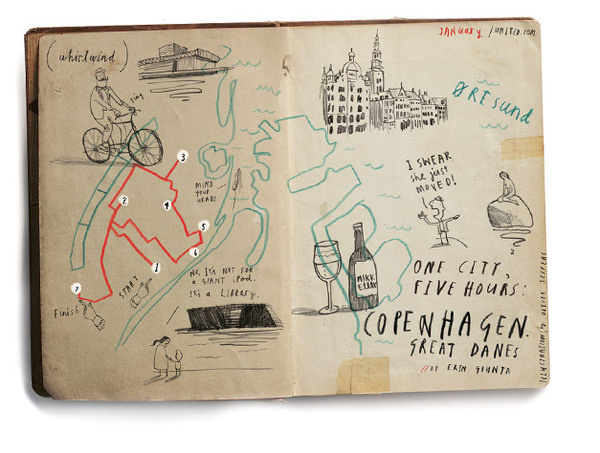 (whirlwind)
ring
3
2
4
MIND
YOUR
HEADS.
5
6
1
7
START
Finish
No, It's NOT FOR
a GIANT iPod.
It's a LIBRARY.
JANuary / UNITED.COM
ØRESund
I SWEAR
she just
MOVED!
MIKK
ELLER
ONE CITY,
FIVE HOURS:
COPENHAGEN.
GREAT DANES
//BY ERIN
ILLUSTRATION by OLIVER JEFFERS